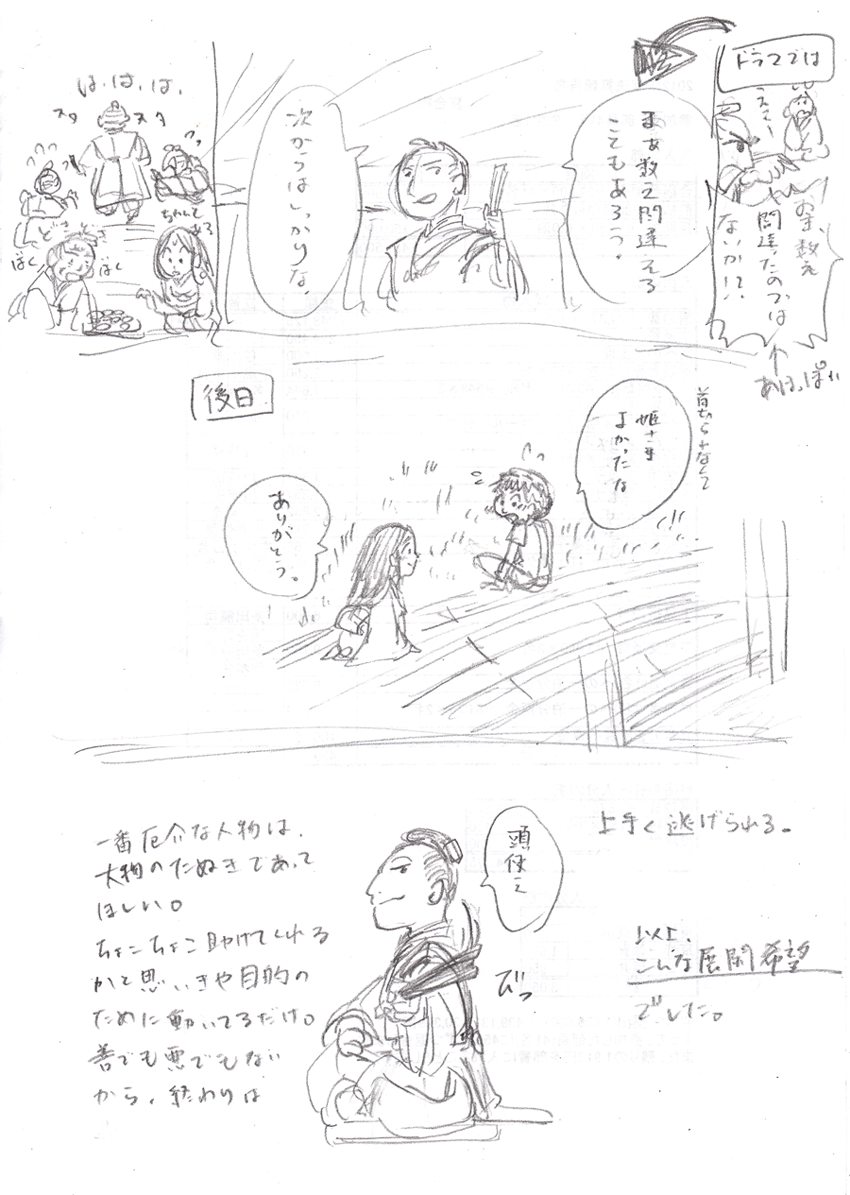 ドラマでは
お主、数え
間違たのでは
ないか!?
↑
あほっぽい
まぁ数え間違える
こともあろう。
次からはしっかりな。
は、は、は、
スタ
スタ
どき
どき
ばく
ばく
後日
首切られなくて
姫さま
よかったな
ありがとう。
頭使え
びっ
一番厄介な人物は、
大物のたぬきであって
ほしい。
ちょこちょこ助けてくれる
かと思いきや目的の
ために動いてるだけ。
善でも悪でもない
から、終わりは
上手く逃げられる。
以上、
こんな展開希望
でした。